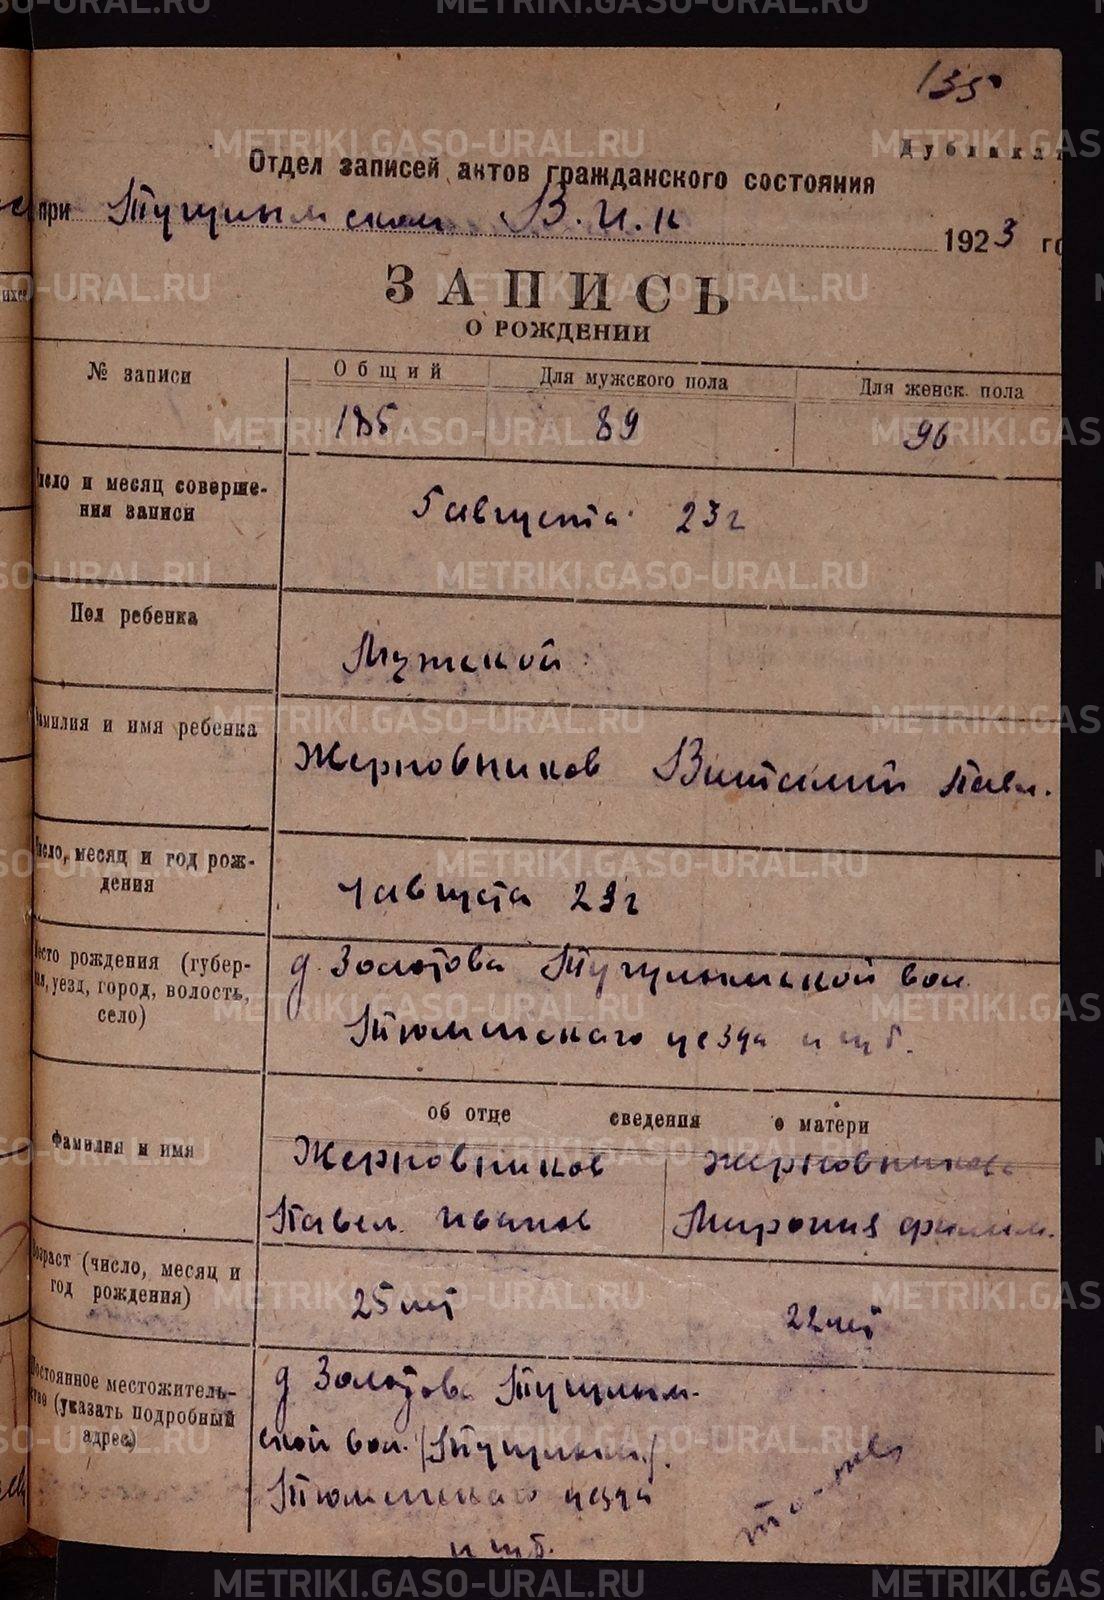 135
Дубликат
Отдел записей актов гражданского состояния
при Тугулымском В.И.К 1923 го
ЗАПИСЬ
О РОЖДЕНИИ
№ записи
Общий
Для мужского пола
Для женск. пола
185
89
96
исло и месяц соверше-
ния записи
5 августа 23 г
Пол ребенка
Мужской
амилия и имя ребенка
Жерновников Виталий Павл.
исло, месяц и год рож-
дения
1 августа 23 г
есто рождения (губер-
ия, уезд, город, волость,
село)
д. Золотова Тугулымской вол.
Тюменского уезда и губ.
об отце сведения о матери
Фамилия и имя
Жерновников
Жерновникова
Павел Иванов
Мирония Филим.
озраст (число, месяц и
год рождения)
25 лет
22 лет
остоянное местожитель-
тво (указать подробный
адрес)
д Золотова Тугулым-
ской вол. (Тугулым).
Тюменского уезда
и губ.
то-же
METRIKI.GASO-URAL.RU